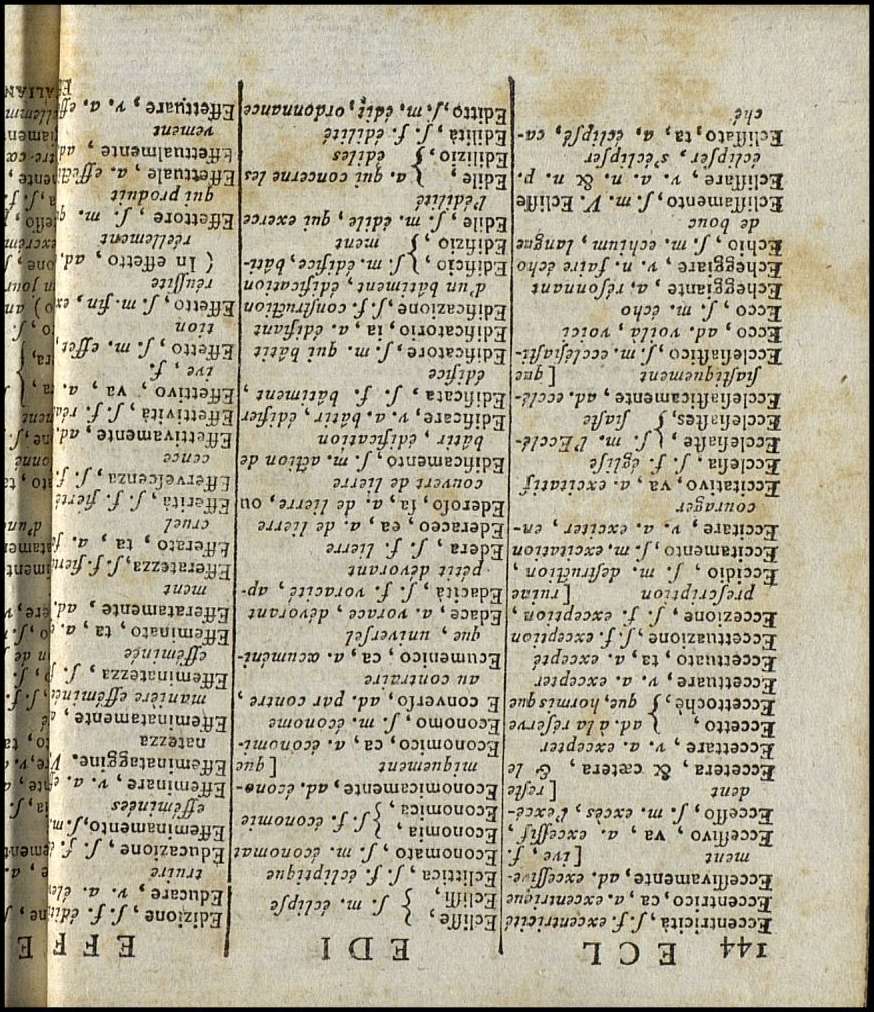 144 ECL
Eccentricità, ſ. f. excentricité
Eccentrico, ca, a. excentrique
Ecceſſivamente, ad. exceſſive-
ment [ive, f.
Ecceſſivo, va, a. exceſſif,
Ecceſſo, ſ. m. excès, l'excé-
dent [reſte
Eccetera, & cætera, & le
Eccettare, v. a. excepter
Eccetto, } ad. à la réſerve
Eccettochè, } que, hormis que
Eccettuare, v. a. excepter
Eccettuato, ta, a. excepté
Eccettuazione, ſ. f. exception
Eccezione, ſ. f. exception,
preſcription [ruine
Eccidio, ſ. m. deſtruction,
Eccitamento, ſ. m. excitation
Eccitare, v. a. exciter, en-
courager
Eccitativo, va, a. excitatif
Eccleſia, ſ. f. égliſe
Eccleſiaſte, } ſ. m. l'Ecclé-
Eccleſiaſtes, } ſiaſte
Eccleſiaſticamente, ad. ecclé-
ſiaſtiquement [que
Eccleſiaſtico, ſ. m. eccléſiaſti-
Ecco, ad. voilà, voici
Ecco, ſ. m. écho
Echeggiante, a. réſonnant
Echeggiare, v. n. faire écho
Echio, ſ. m. echium, langue
de bouc
Ecliſſamento, ſ. m. V. Ecliſſe
Ecliſſare, v. a. n. & n. p.
éclipſer, s'éclipſer
Ecliſſato, ta, a. éclipſé, ca-
ché
EDI
Ecliſſe, } ſ. m. éclipſe
Ecliſſi, }
Eclittica, ſ. f. écliptique
Economato, ſ. m. économat
Economia, } ſ. f. économie
Economica, }
Economicamente, ad. écono-
miquement [que
Economico, ca, a. économi-
Economo, ſ. m. économe
E converſo, ad. par contre,
au contraire
Ecumenico, ca, a. œcuméni-
que, univerſel
Edace, a. vorace, dévorant
Edacità, ſ. f. voracité, ap-
pétit dévorant
Edera, ſ. f. lierre
Ederaceo, ea, a. de lierre
Ederoſo, ſa, a. de lierre, ou
couvert de lierre
Edificamento, ſ. m. action de
bâtir, édification
Edificare, v. a. bâtir, édifier
Edificata, ſ. f. bâtiment,
édifice
Edificatore, ſ. m. qui bâtit
Edificatorio, ia, a. édifiant
Edificazione, ſ. f. conſtruction
d'un bâtiment, édification
Edificio, } ſ. m. édifice, bâti-
Edifizio, } ment
Edile, ſ. m. édile, qui exerce
l'édilité
Edile, } a. qui concerne les
Edilizio, } édiles
Edilità, ſ. f. édilité
Editto, ſ. m. édit, ordonnance
EFFE
Edizione, ſ. f.
Educare, v. a.
truire
Educazione, ſ. f.
Effeminamento, ſ. m.
efféminées
Effeminare, v. a.
Effeminataggine. V.
natezza
Effeminatamente,
manière efféminée
Effeminatezza, ſ. f.
efféminée
Effeminato, ta, a.
Efferatamente, ad.
ment
Efferatezza, ſ. f. fierté
Efferato, ta, a.
cruel
Efferità, ſ. f. fierté
Efferveſcenza, ſ. f.
cence
Effettivamente, ad.
Effettività, ſ. f.
Effettivo, va, a.
ive, f.
Effetto, ſ. m. effet,
tion
Effetto, ſ. m. fin,
réuſſite
( In effetto, ad.
réellement
Effettore, ſ. m.
qui produit
Effettuale, a.
Effettualmente, ad.
vement
Effettuare, v. a.